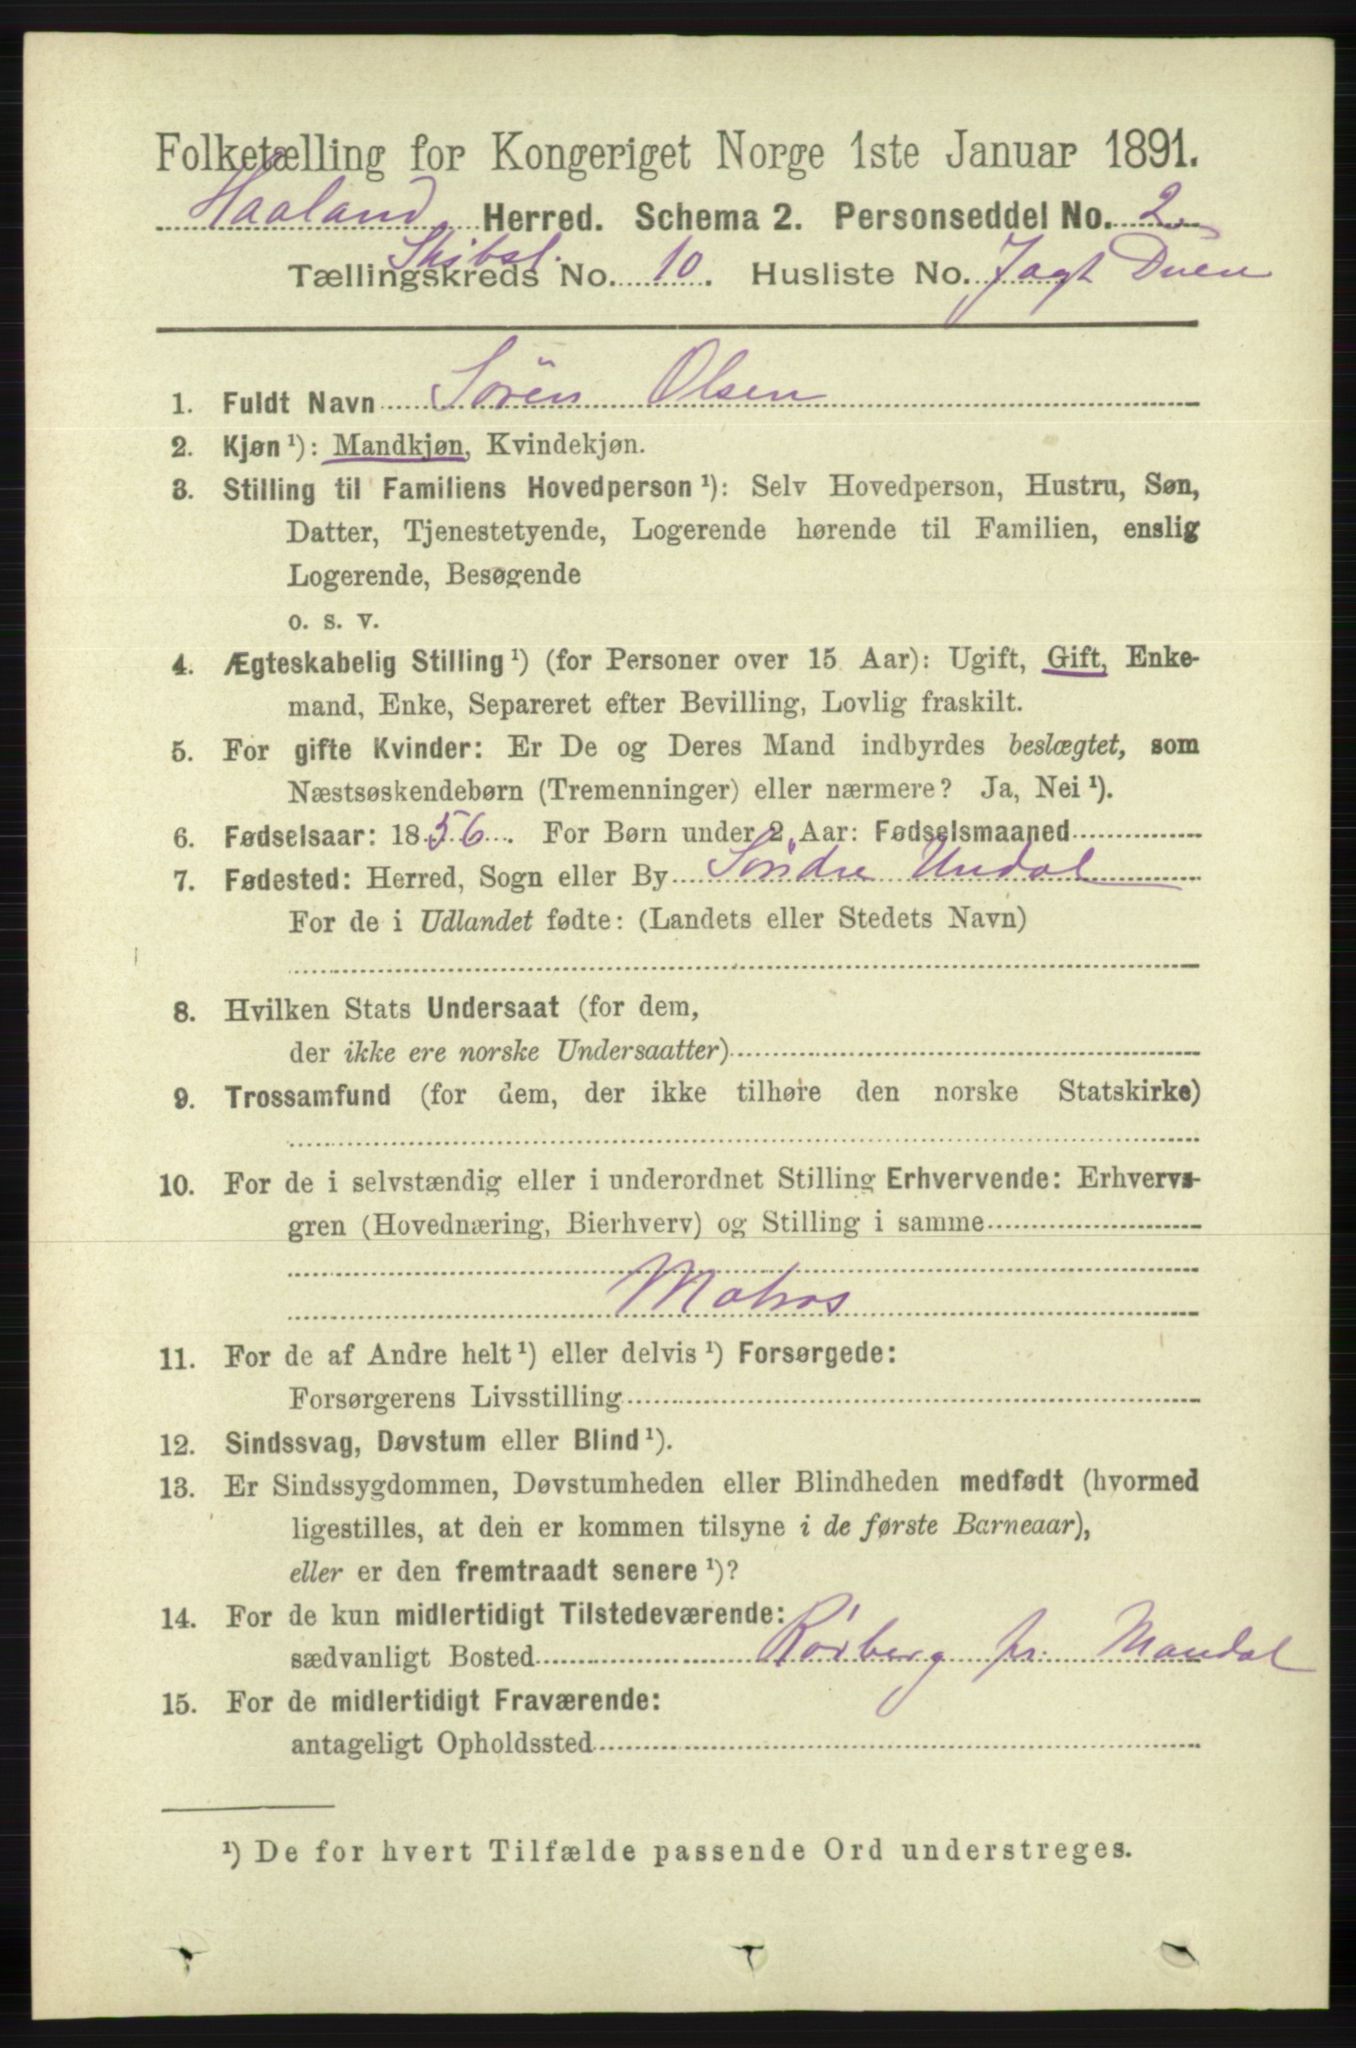 Folketælling for Kongeriget Norge 1ste Januar 1891.
Haaland Herred. Schema 2. Personseddel No. 2
Skibsl.
Tællingskreds No. 10. Husliste No. Jagt Duen
1. Fuldt Navn Sören Olsen
2. Kjøn ¹): Mandkjøn, Kvindekjøn.
3. Stilling til Familiens Hovedperson ¹): Selv Hovedperson, Hustru, Søn,
Datter, Tjenestetyende, Logerende hørende til Familien, enslig
Logerende, Besøgende
o. s. v.
4. Ægteskabelig Stilling ¹) (for Personer over 15 Aar): Ugift, Gift, Enke-
mand, Enke, Separeret efter Bevilling, Lovlig fraskilt.
5. For gifte Kvinder: Er De og Deres Mand indbyrdes beslægtet, som
Næstsøskendebørn (Tremenninger) eller nærmere? Ja, Nei ¹).
6. Fødselsaar: 1856. For Børn under 2 Aar: Fødselsmaaned
7. Fødested: Herred, Sogn eller By Söndre Undal
For de i Udlandet fødte: (Landets eller Stedets Navn)
8. Hvilken Stats Undersaat (for dem,
der ikke ere norske Undersaatter)
9. Trossamfund (for dem, der ikke tilhøre den norske Statskirke)
10. For de i selvstændig eller i underordnet Stilling Erhvervende: Erhvervs-
gren (Hovednæring, Bierhverv) og Stilling i samme
Matros
11. For de af Andre helt ¹) eller delvis ¹) Forsørgede:
Forsørgerens Livsstilling
12. Sindssvag, Døvstum eller Blind ¹).
13. Er Sindssygdommen, Døvstumheden eller Blindheden medfødt (hvormed
ligestilles, at den er kommen tilsyne i de første Barneaar),
eller er den fremtraadt senere ¹)?
14. For de kun midlertidigt Tilstedeværende:
sædvanligt Bosted pr. Mandal
15. For de midlertidigt Fraværende:
antageligt Opholdssted
¹) De for hvert Tilfælde passende Ord understreges.